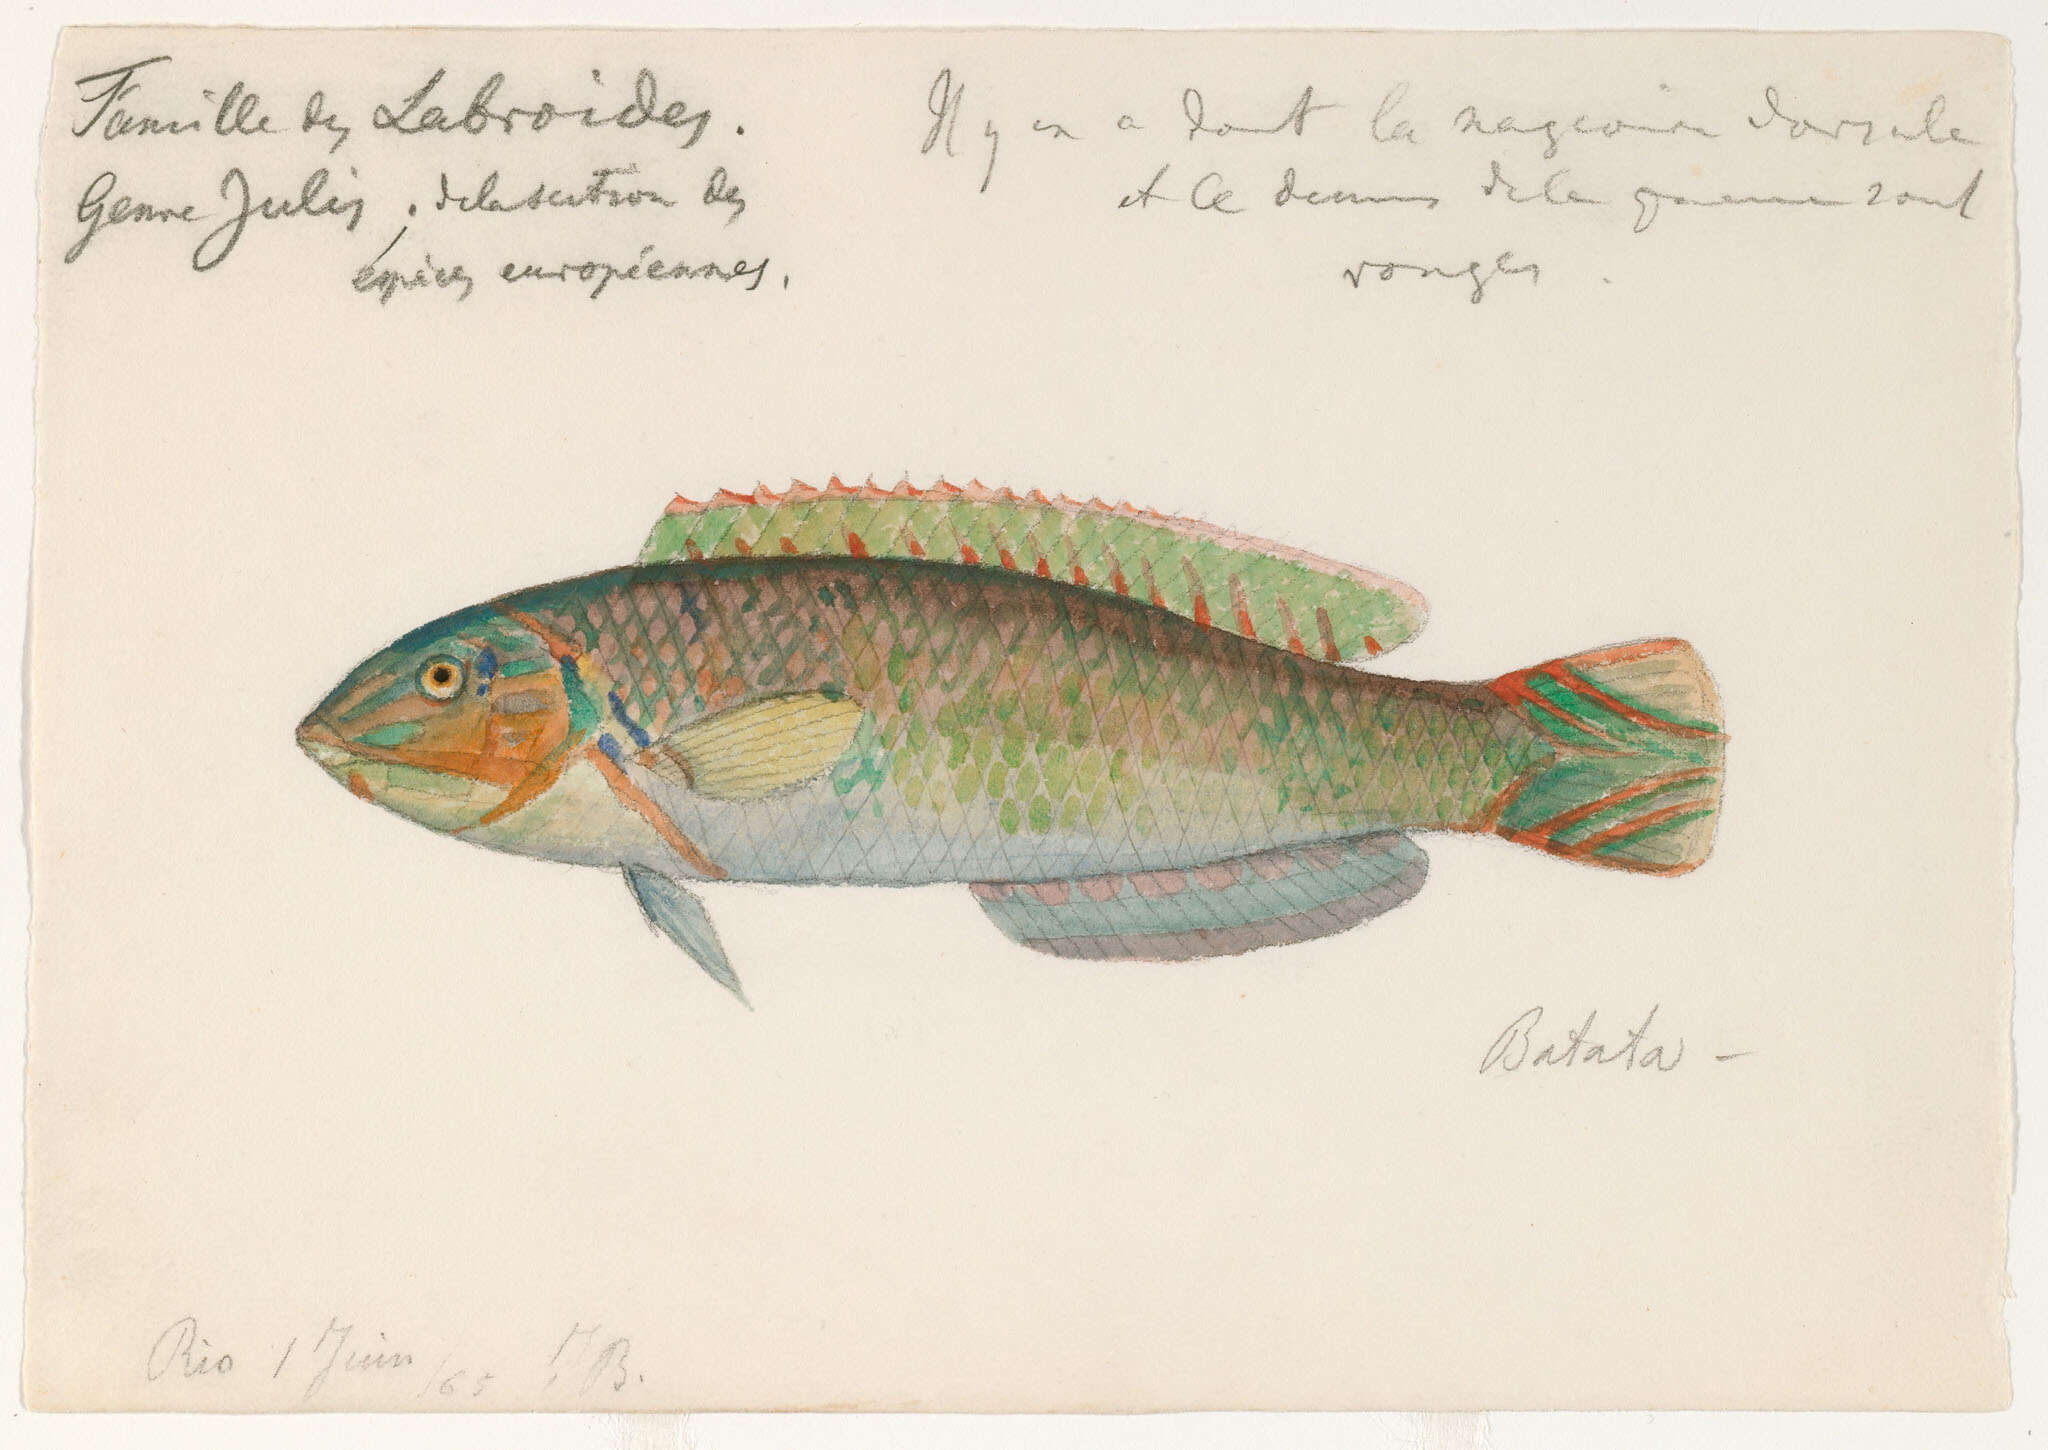 Famille des Labroides.
Genre Julis, de la section des
espèces européennes.
Il y en a dont la nageoire dorsale
et le dessus de la queue sont
rouges.
Batata -
Rio 1 Juin /65 J B.